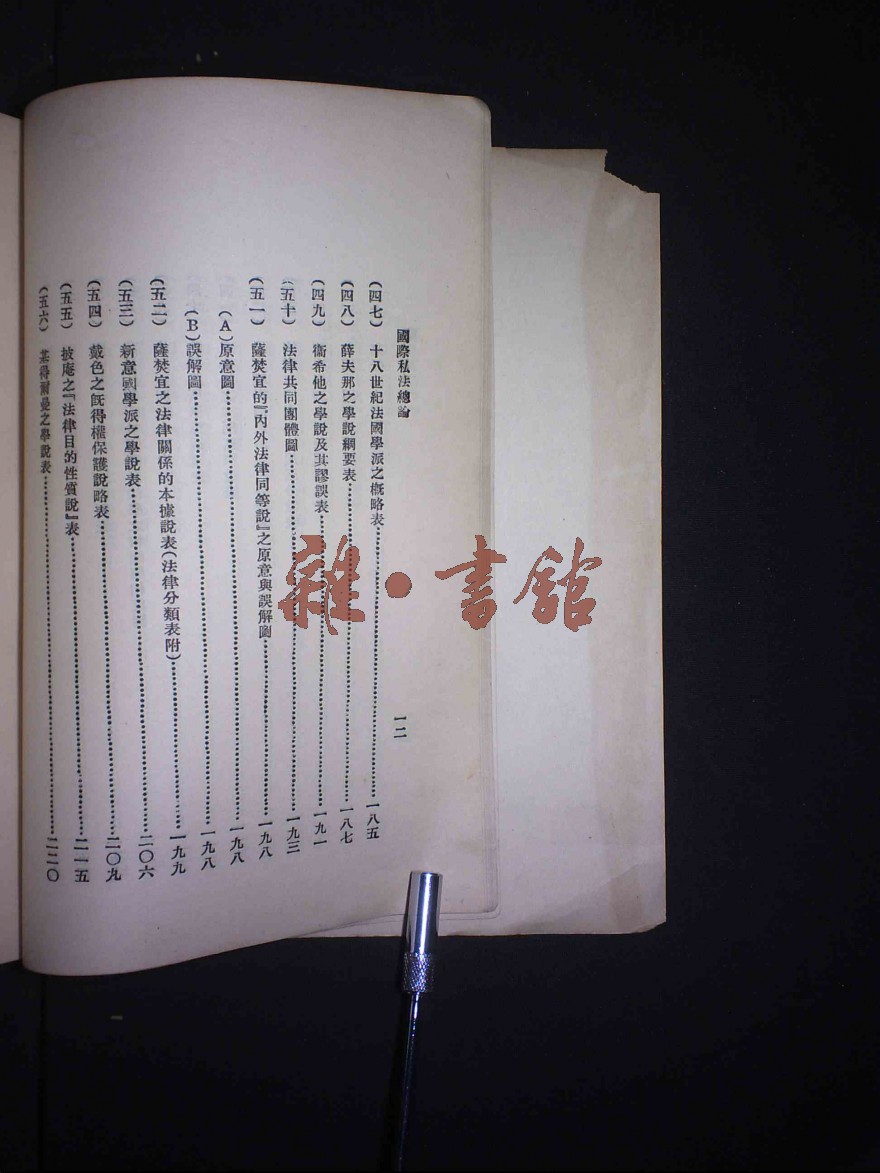 國際私法總論
一二
(四七) 十八世紀法國學派之概略表……一八五
(四八) 薛夫那之學說綱要表……一八七
(四九) 衞希他之學說及其謬誤表……一九一
(五十) 法律共同團體圖……一九三
(五一) 薩焚宜的『內外法律同等說』之原意與誤解圖……一九八
(A)原意圖……一九八
(B)誤解圖……一九八
(五二) 薩焚宜之法律關係的本據說表(法律分類表附)……一九九
(五三) 新意國學派之學說表……二〇六
(五四) 戴色之旣得權保護說略表……二〇九
(五五) 披庵之『法律目的性質說』表……二一五
(五六) 基得爾曼之學說表……二二〇
雜·書舘